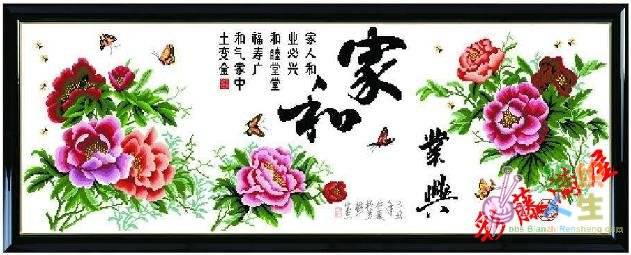 家和
業興
家人和
业必兴
和睦堂堂
福寿广
和气家中
土变金
生
bbs Bianzhi Rensheng.com